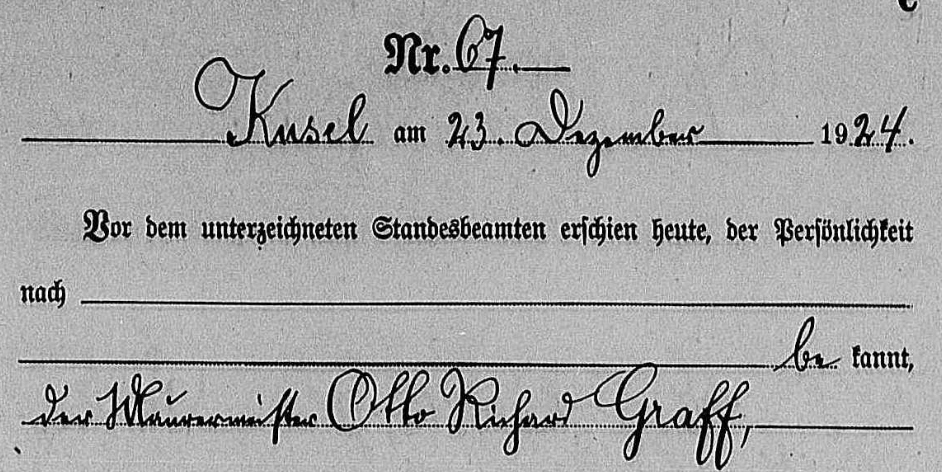 Nr. 67.
Kusel am 23. Dezember 1924.
Vor dem unterzeichneten Standesbeamten erschien heute, der Persönlichkeit
nach
be kannt,
der Maurermeister Otto Richard Graff,